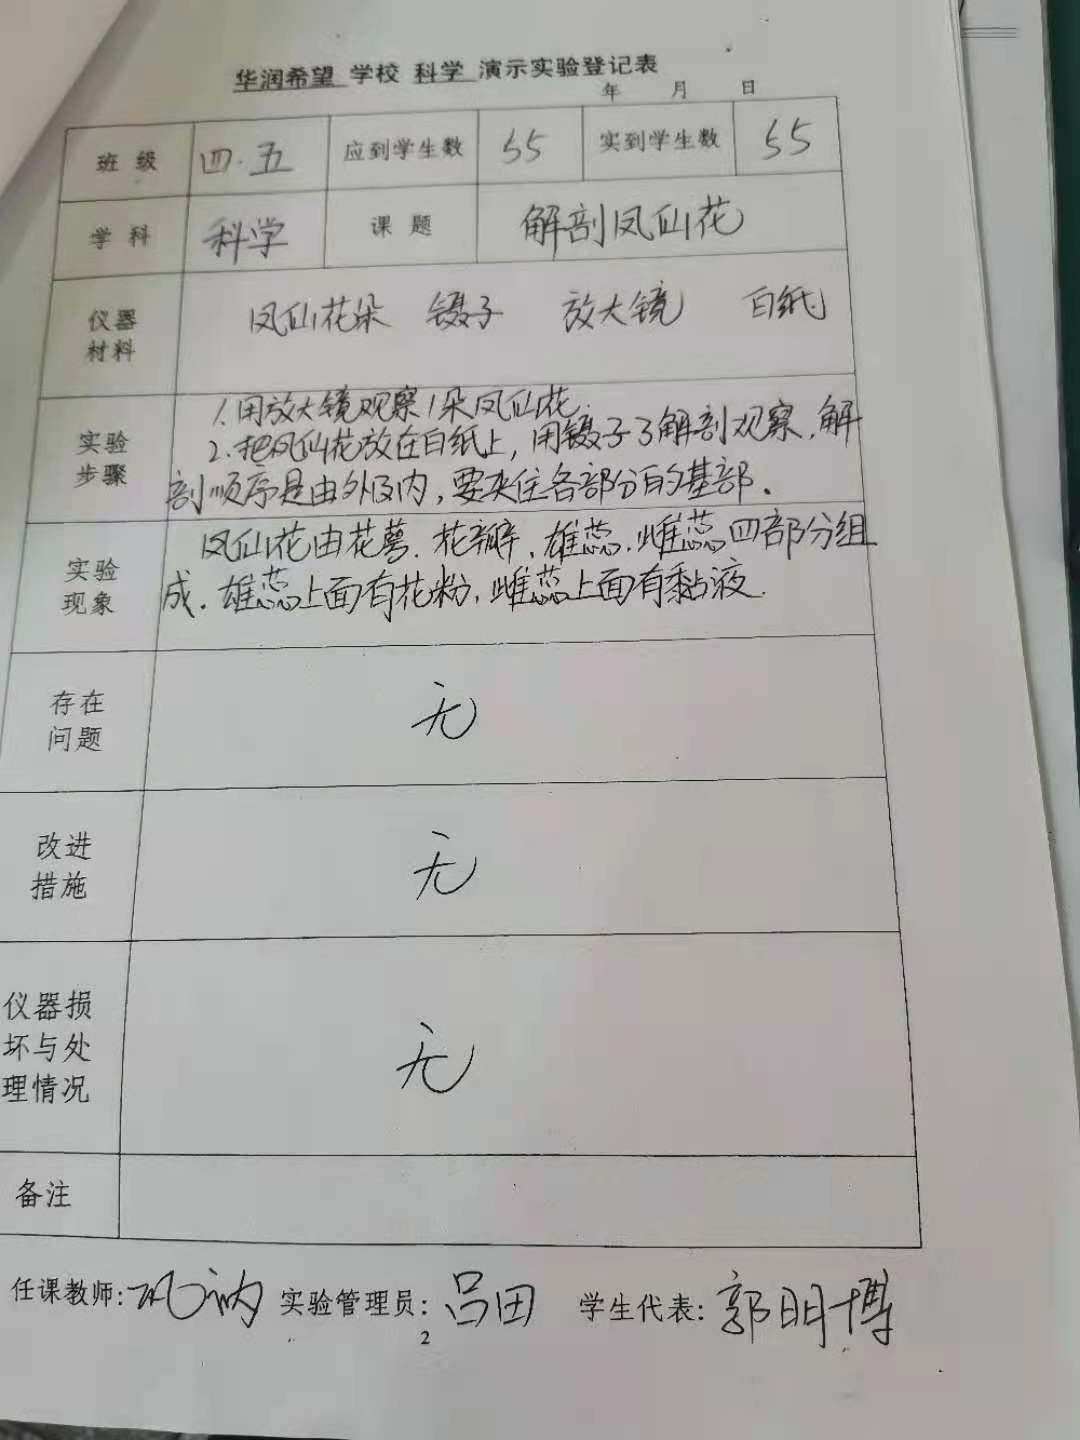 华润希望 学校 科学 演示实验登记表
年 月 日
班 级 四.五 应到学生数 55 实到学生数 55
学 科 科学 课 题 解剖凤仙花
仪器 凤仙花朵 镊子 放大镜 白纸
材料
1.用放大镜观察1朵凤仙花.
实验 2.把凤仙花放在白纸上，用镊子了解剖观察.解
步骤 剖顺序是由外及内，要夹住各部分的基部.
凤仙花由花萼.花瓣.雄蕊.雌蕊四部分组
实验
现象 成.雄蕊上面有花粉.雌蕊上面有黏液.
存在 无
问题
改进 无
措施
仪器损
坏与处 无
理情况
备注
任课教师: 实验管理员: 吕田 学生代表: 郭明博
2